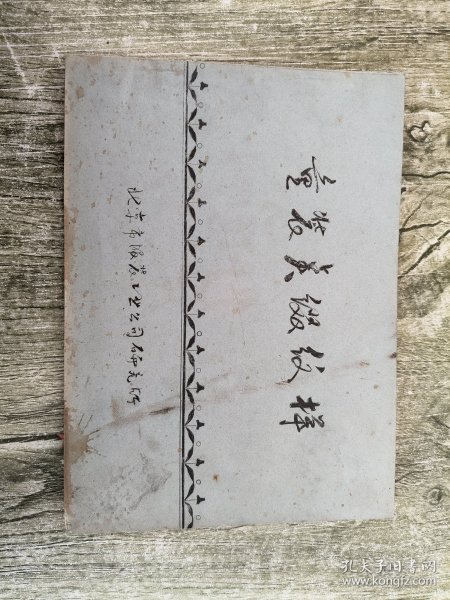 童装点缀纹样
北京市服装工业公司研究所
孔夫子旧书网
www.kongfz.com